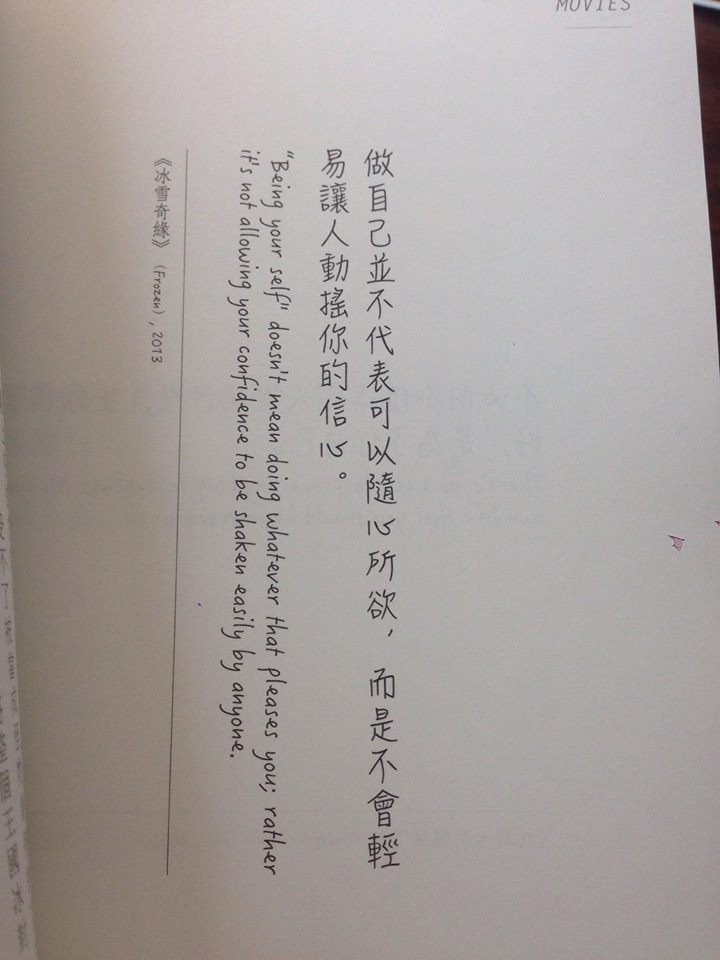 MOVIES
做自己並不代表可以隨心所欲，而是不會輕
易讓人動搖你的信心。
"Being your self" doesn't mean doing whatever that pleases you; rather
it's not allowing your confidence to be shaken easily by anyone.
《冰雪奇緣》（Frozen），2013